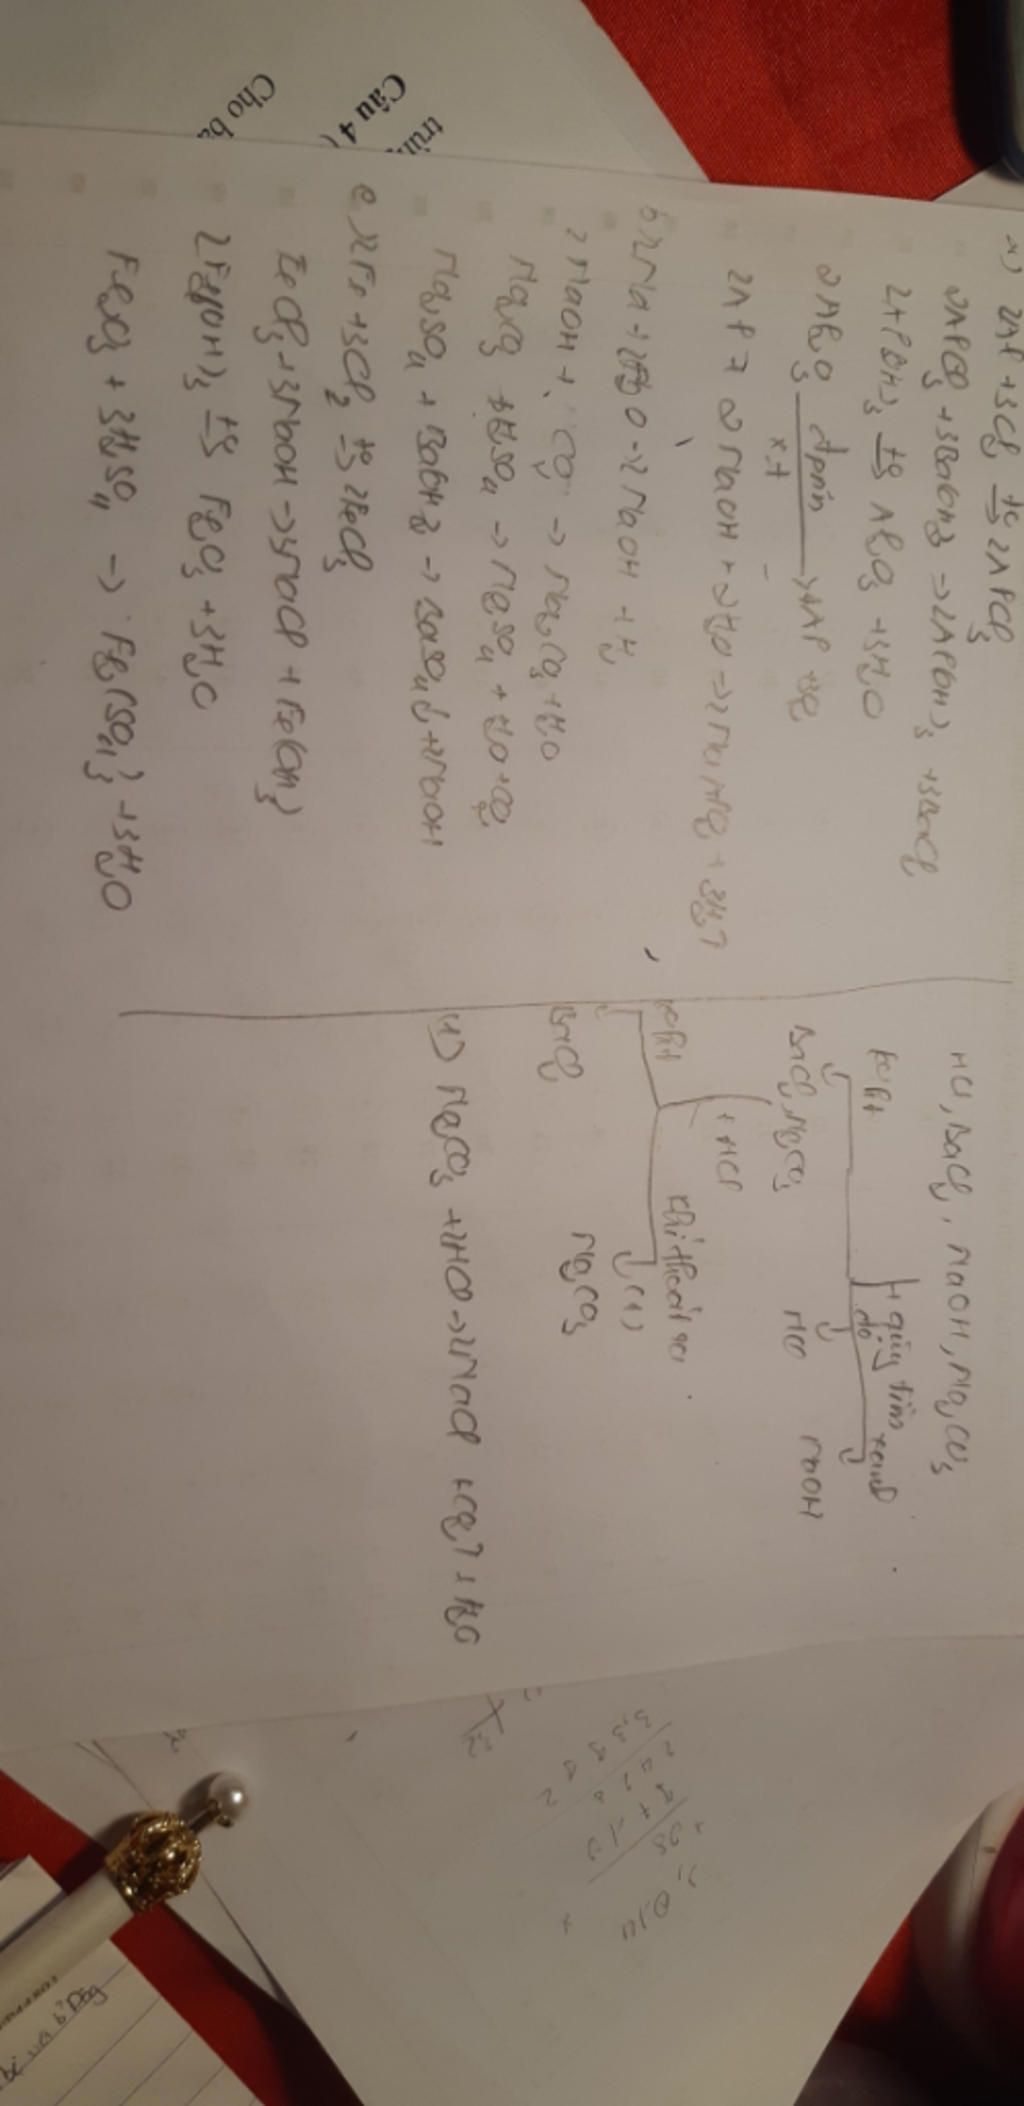 2Al + 3Cl2 t° → 2AlCl3
2AlCl3 + 3Ba(OH)2 → 2Al(OH)3 + 3BaCl2
2Al(OH)3 t° → Al2O3 + 3H2O
2Al2O3 đpnc → 4Al + 3O2
x.t
2Al + 2NaOH + 2H2O → 2NaAlO2 + 3H2↑
b, 2Na + 2H2O → 2NaOH + H2
2NaOH + CO2 → Na2CO3 + H2O
Na2CO3 + H2SO4 → Na2SO4 + H2O + CO2
Na2SO4 + Ba(OH)2 → BaSO4↓ + 2NaOH
c, 2Fe + 3Cl2 t° → 2FeCl3
FeCl3 + 3NaOH → 3NaCl + Fe(OH)3
2Fe(OH)3 t° → Fe2O3 + 3H2O
Fe2O3 + 3H2SO4 → Fe2(SO4)3 + 3H2O
HCl, BaCl2, NaOH, Na2CO3
+ quỳ tím
đỏ
xanh
BaCl2, Na2CO3
HCl
NaOH
+ HCl
khí thoát ra
(1)
BaCl2
Na2CO3
(1) Na2CO3 + 2HCl → 2NaCl + CO2↑ + H2O
trùn
Câu 4 (
Cho b
0,14